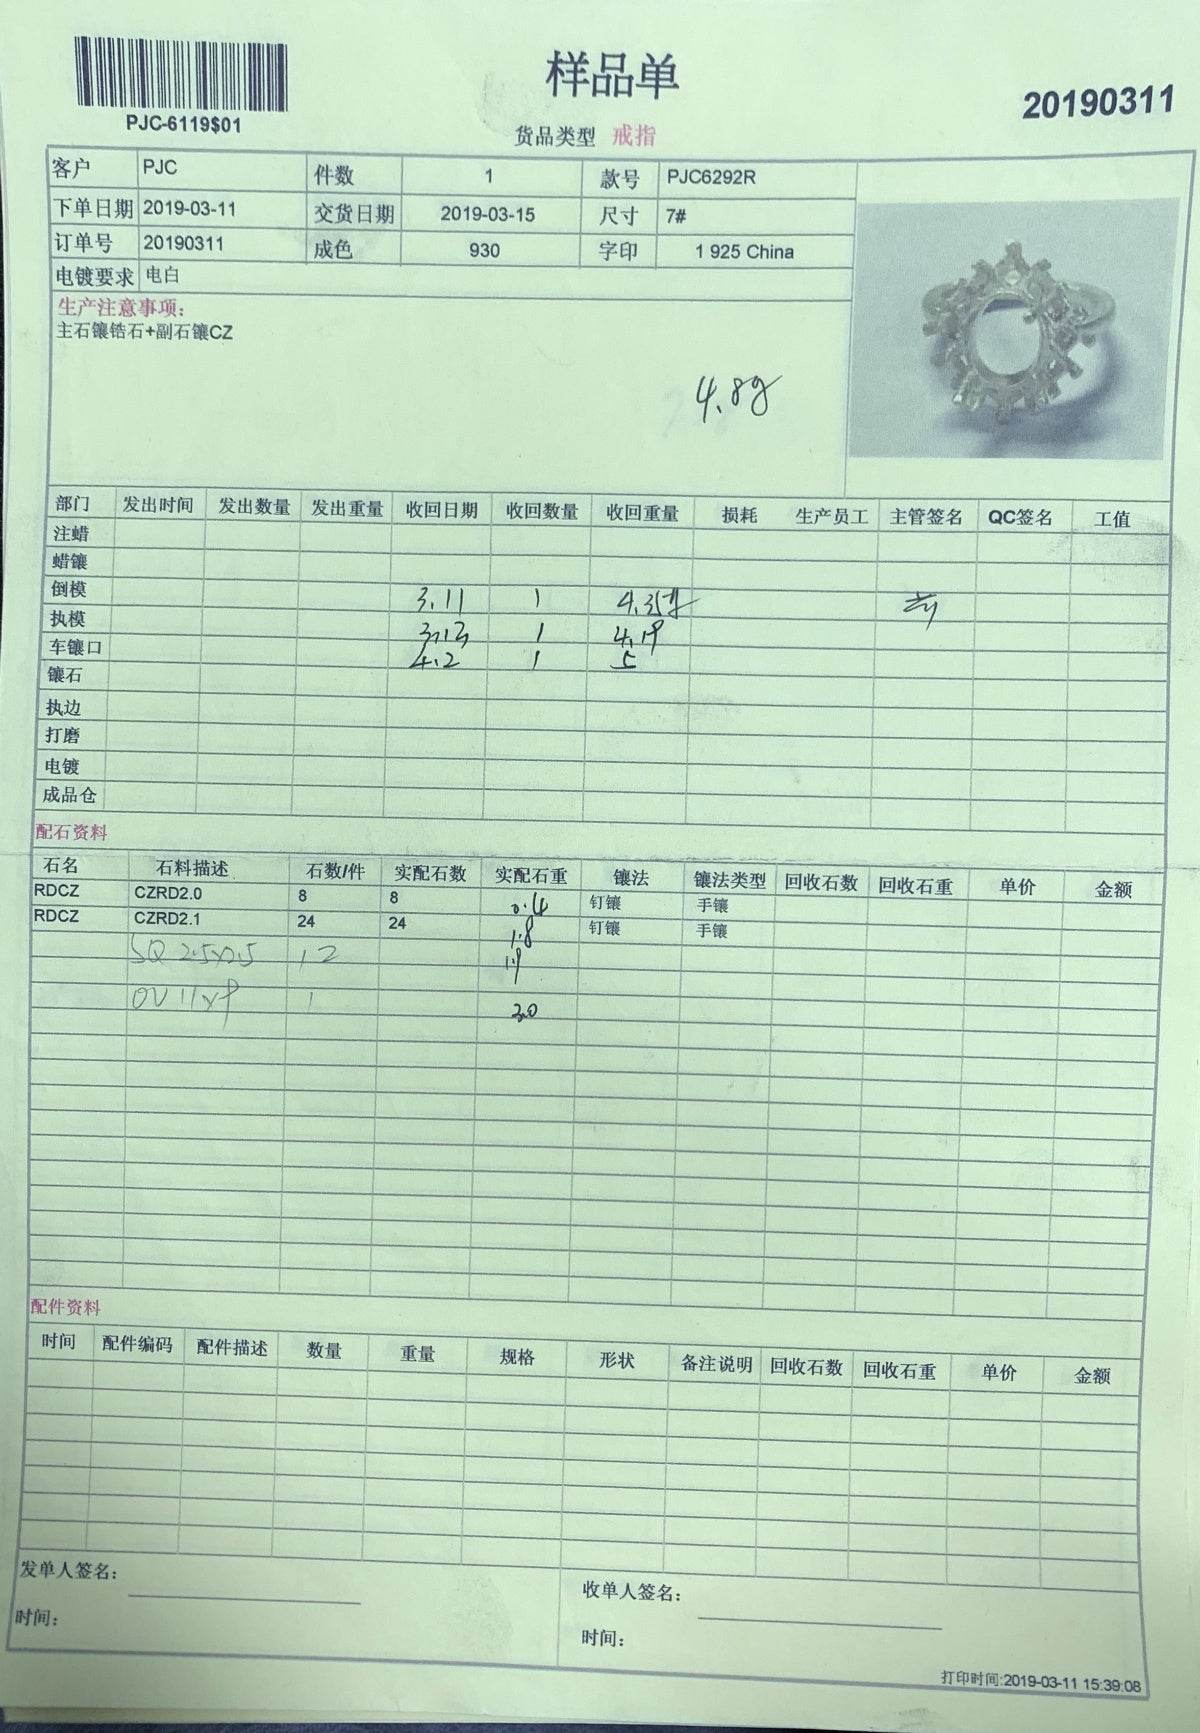 样品单
20190311
PJC-6119$01
货品类型 戒指
客户 PJC 件数 1 款号 PJC6292R
下单日期 2019-03-11 交货日期 2019-03-15 尺寸 7#
订单号 20190311 成色 930 字印 1 925 China
电镀要求 电白
生产注意事项:
主石镶锆石+副石镶CZ
4.8g
部门 发出时间 发出数量 发出重量 收回日期 收回数量 收回重量 损耗 生产员工 主管签名 QC签名 工值
注蜡
蜡镶
倒模 3.11 1 4.35
执模 3.13 1 4.19
车镶口 4.2 1 5
镶石
执边
打磨
电镀
成品仓
配石资料
石名 石料描述 石数/件 实配石数 实配石重 镶法 镶法类型 回收石数 回收石重 单价 金额
RDCZ CZRD2.0 8 8 0.4 钉镶 手镶
RDCZ CZRD2.1 24 24 1.8 钉镶 手镶
SQ 2.5x2.5 12 1.9
OV 11x9 1
配件资料
时间 配件编码 配件描述 数量 重量 规格 形状 备注说明 回收石数 回收石重 单价 金额
发单人签名: 收单人签名:
时间: 时间:
打印时间:2019-03-11 15:39:08